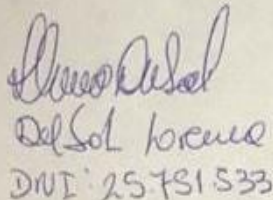 Del Sol Lorena
DNI: 25.751.533